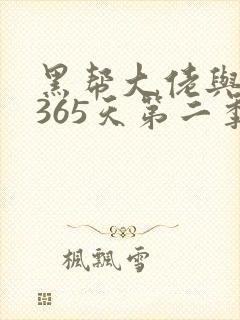 黑帮大佬與
365天第二季
楓飄雪